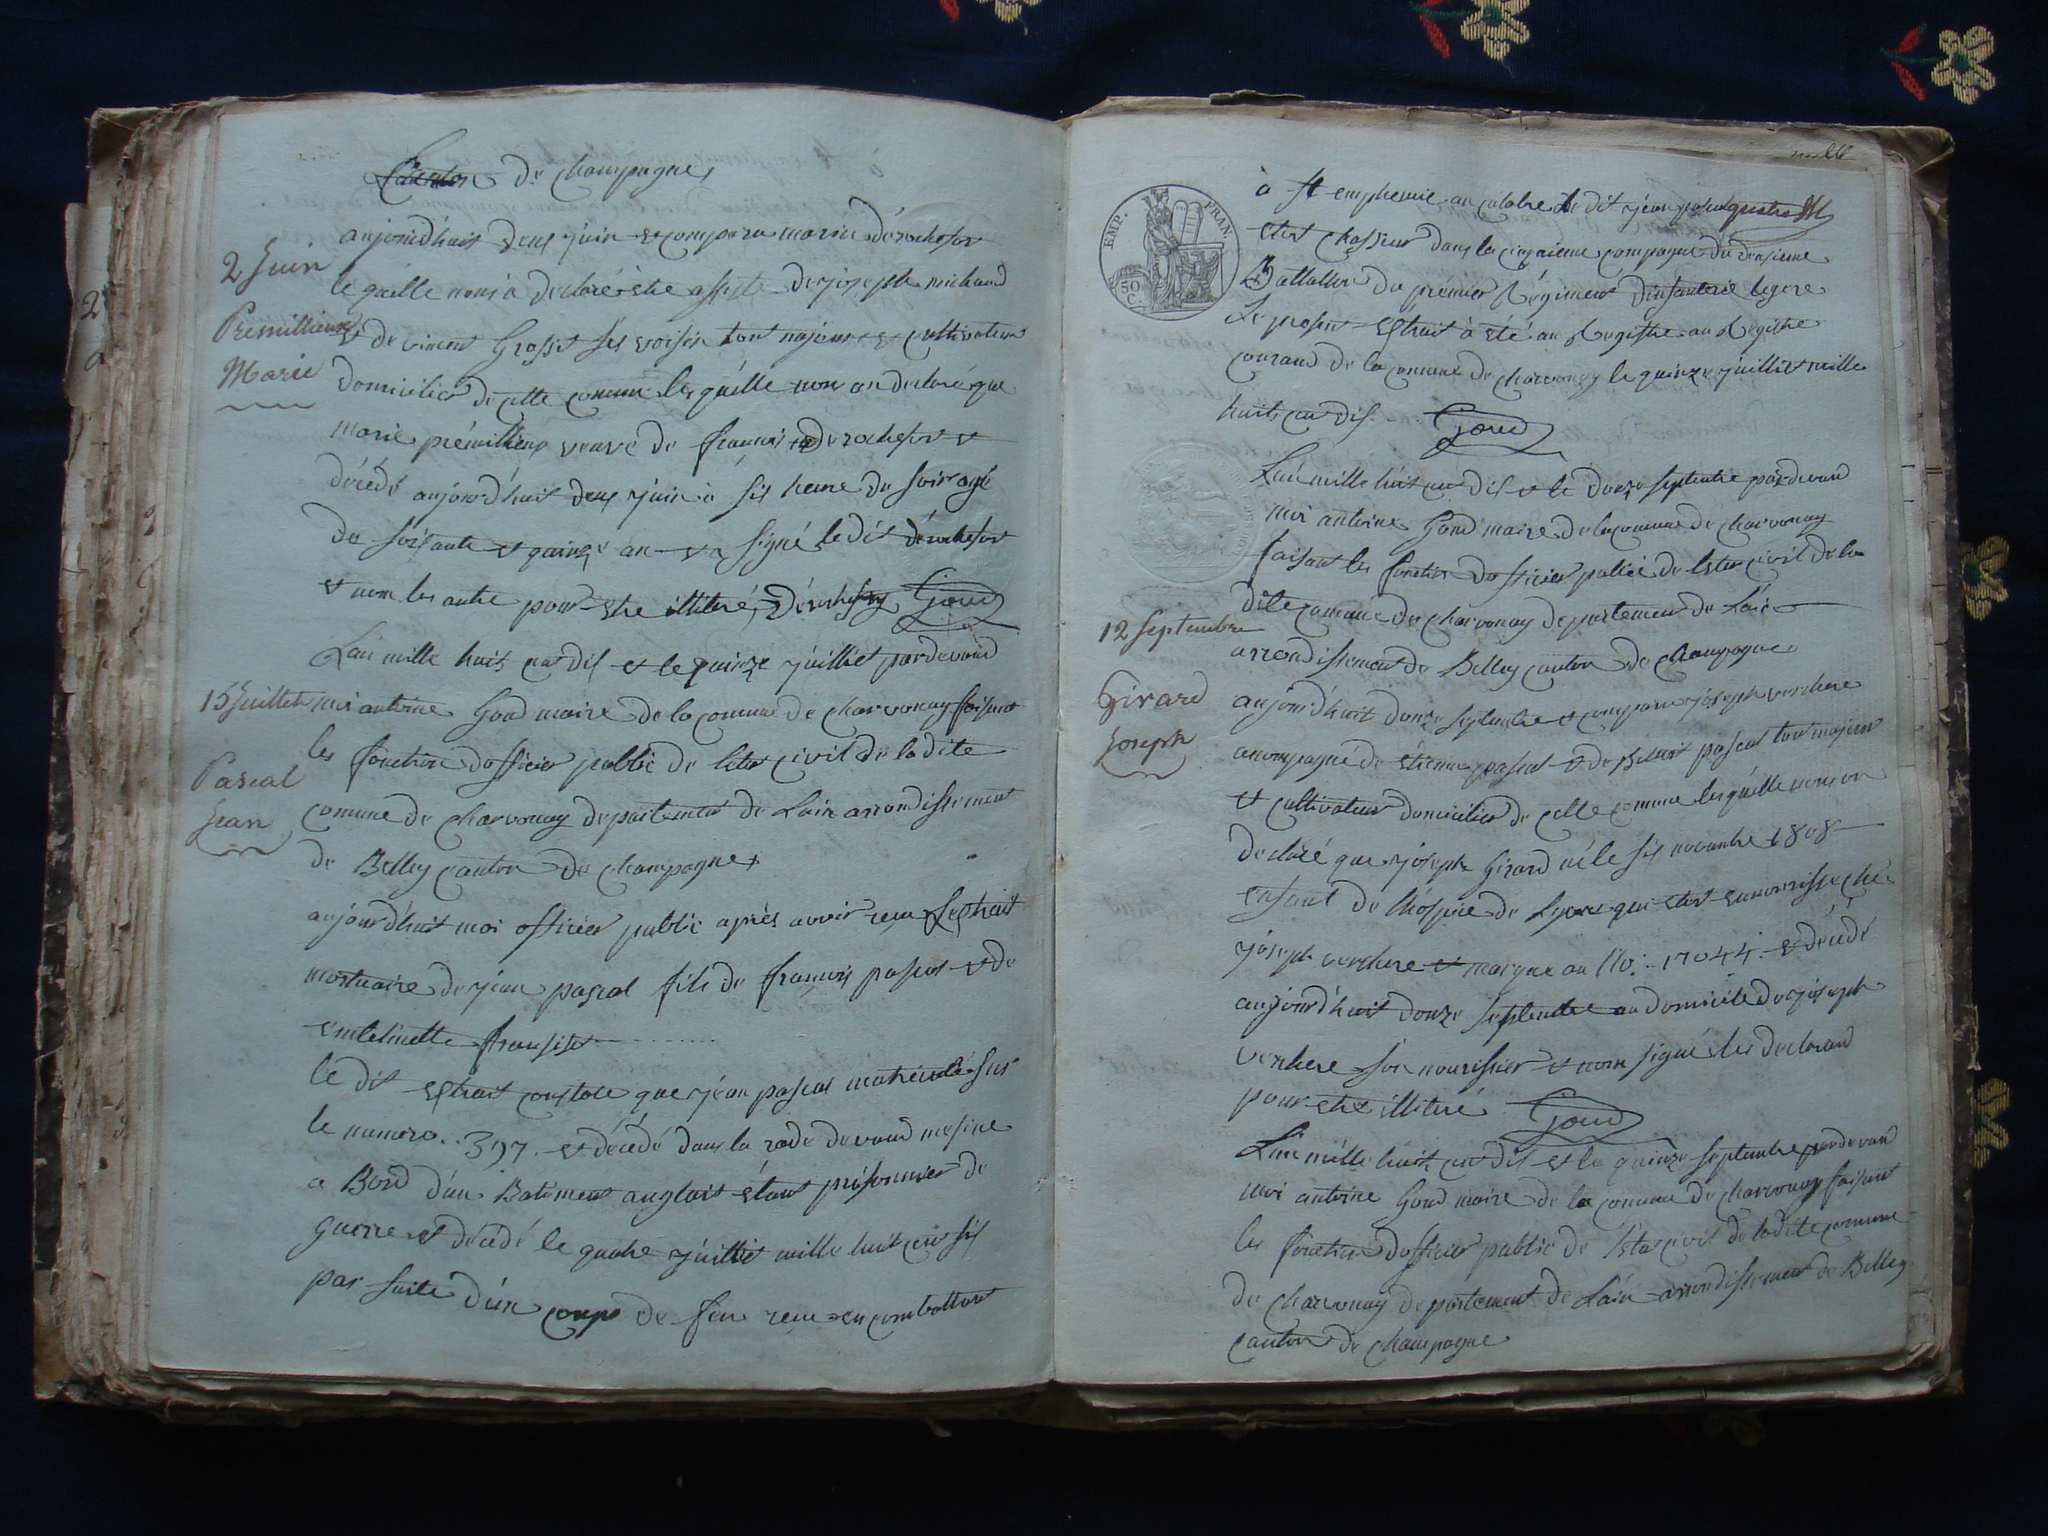 Canton de Champagne
aujourdhuit deux juin et comparu marie dérochefort
2 Juin
le quélle nous à declaré être assisté de joseph michaud
Prémillieux
et de vincent Grosset ses voisin tout majeur et cultivateur
Marie
domicilier de cette comune les quélle nous on declaré que
marie prémillieux veuve de francois derochefort et
décédé aujourd'huit deux juin à six heure du soir agé
de soisante et quinze an et a signé le dit dérochefort
et nom les autre pour etre illitéré, Dérochefort Goud
L'an mille huit cent dix et le quinze juilliet pardevand
15 Juillet
moi antoine Goud maire de la comune de charvonay faisant
les fonction d'officier public de l'etat civil de la dite
Pascal
comune de charvonay departement de L'ain arrondissement
Jean
de Belley canton de champagne
aujourd'huit moi officier public après avoir reçu L'extrait
mortuaire de jean pascal fils de francois pascal et de
le dit extrait constate que jéan pascal matriculé sur
le numero 397. et décédé dans la rade devand mesine
a Bord d'un Batiment anglais étant prisonnier de
guerre et décédé le quatre juilliet mille huit cent six
par suite d'un coups de feu reçu en combattant
EMP. FRAN.
50 C.
à St emphemie en calabre le dit jean pascal
etoit chasseur dans la cinquieme compagnie du deusieme
Battallion du prémier Régiment d'infanterie légere
Le present extrait à été au Registre au Registre
courand de la comune de charvonay le quinze juilliet mille
huit cent dix Goud
L'an mille huit cent dix et le douze septembre pardevand
moi antoine Goud maire de la comune de charvonay
faisant les fonction d'officier public de l'etat civil de la
dite comune de charvonay departement de L'ain
12 Septembre
arrondissement de Belley canton de champagne
Girard
aujourd'huit douze septembre et comparu joseph verchere
Joseph
accompagné de étienne pascal et de Benoit pascal tout majeur
et cultivateur domicilier de cette comune les quélle nous on
declaré que joseph Girard né le six novembre 1808
enfant de l'hospice de Lyon que etoit en nourisse ché
joseph verchere et marque au No. 17044. et décédé
aujourd'huit douze septembre au domicile de joseph
verchere son nourissier et nom signé les declarand
pour etre illitéré Goud
L'an mille huit cent dix et le quinze septembre pardevand
moi antoine Goud maire de la comune de charvonay faisant
les fonction d'officier public de l'etat civil de la dite comune
de charvonay departement de L'ain arrondissement de Belley
canton de champagne